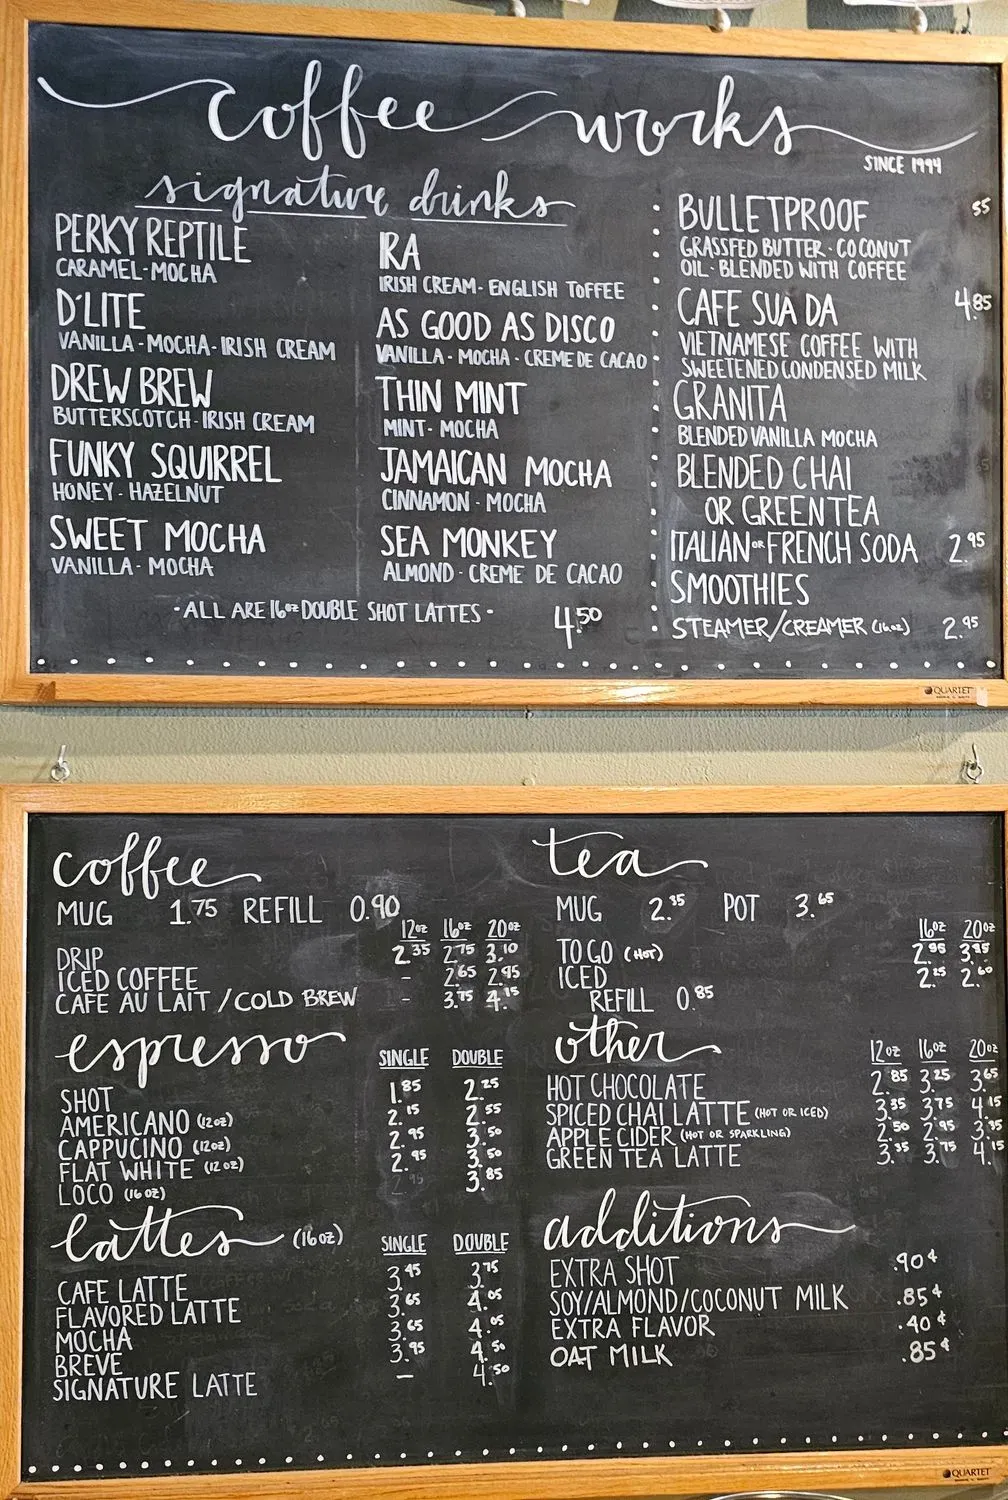 coffee works
SINCE 1994
signature drinks
PERKY REPTILE
CARAMEL - MOCHA
D'LITE
VANILLA - MOCHA - IRISH CREAM
DREW BREW
BUTTERSCOTCH - IRISH CREAM
FUNKY SQUIRREL
HONEY - HAZELNUT
SWEET MOCHA
VANILLA - MOCHA
IRA
IRISH CREAM - ENGLISH TOFFEE
AS GOOD AS DISCO
VANILLA - MOCHA - CREME DE CACAO
THIN MINT
MINT - MOCHA
JAMAICAN MOCHA
CINNAMON - MOCHA
SEA MONKEY
ALMOND - CREME DE CACAO
- ALL ARE 16oz DOUBLE SHOT LATTES - 4.50
BULLETPROOF
GRASSFED BUTTER · COCONUT
OIL · BLENDED WITH COFFEE
CAFE SUA DA 4.85
VIETNAMESE COFFEE WITH
SWEETENED CONDENSED MILK
GRANITA
BLENDED VANILLA MOCHA
BLENDED CHAI
OR GREEN TEA
ITALIAN OR FRENCH SODA 2.95
SMOOTHIES
STEAMER/CREAMER (16oz) 2.95
QUARTET
coffee
MUG 1.75 REFILL 0.90
12oz 16oz 20oz
DRIP 2.35 2.75 3.10
ICED COFFEE - 2.65 2.95
CAFE AU LAIT / COLD BREW - 3.75 4.15
espresso SINGLE DOUBLE
SHOT 1.85 2.25
AMERICANO (12oz) 2.15 2.55
CAPPUCINO (12oz) 2.95 3.50
FLAT WHITE (12oz) 2.95 3.50
LOCO (16oz) 3.85
lattes (16oz) SINGLE DOUBLE
CAFE LATTE 3.45 3.75
FLAVORED LATTE 3.65 4.05
MOCHA 3.65 4.05
BREVE 3.95 4.50
SIGNATURE LATTE - 4.50
tea
MUG 2.35 POT 3.65
16oz 20oz
TO GO (HOT) 2.95 3.95
ICED 2.25 2.60
REFILL 0.85
other 12oz 16oz 20oz
HOT CHOCOLATE 2.85 3.25 3.65
SPICED CHAI LATTE (HOT OR ICED) 3.35 3.75 4.15
APPLE CIDER (HOT OR SPARKLING) 2.50 2.95 3.35
GREEN TEA LATTE 3.35 3.75 4.15
additions
EXTRA SHOT .90¢
SOY/ALMOND/COCONUT MILK .85¢
EXTRA FLAVOR .40¢
OAT MILK .85¢
QUARTET